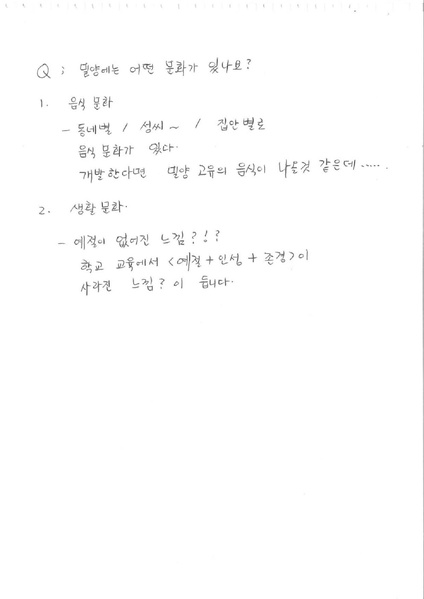 Q ; 밀양에는 어떤 문화가 있나요?
1. 음식 문화
- 동네별 / 성씨~ / 집안별로
음식 문화가 있다.
개발한다면 밀양 고유의 음식이 나올것 같은데.....
2. 생활문화.
- 예절이 없어진 느낌?!?
학교 교육에서 <예절+인성+존경>이
사라진 느낌? 이 듭니다.